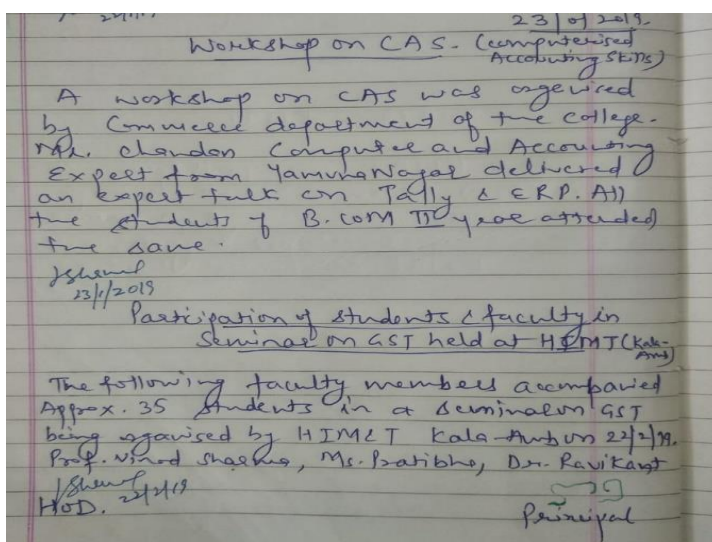 23/01/2019.
Workshop on CAS. (computerised
Accounting Skills)
A workshop on CAS was orgenised
by Commerce department of the college.
Mr. Chandan Computer and Accounting
Expert from YamunaNagar delivered
an expert talk on Tally & ERP. All
the students of B.COM III year attended
the same.
23/1/2019
Participation of students & faculty in
Seminar on GST held at HIMT (Kala-
Amb)
The following faculty members accompanied
Approx. 35 students in a seminar on GST
being organised by HIM&T Kala-Amb on 22/2/19.
Prof. Vinod Sharma, Ms. Pratibha, Dr. Ravikant
HOD. 22/2/19
Principal